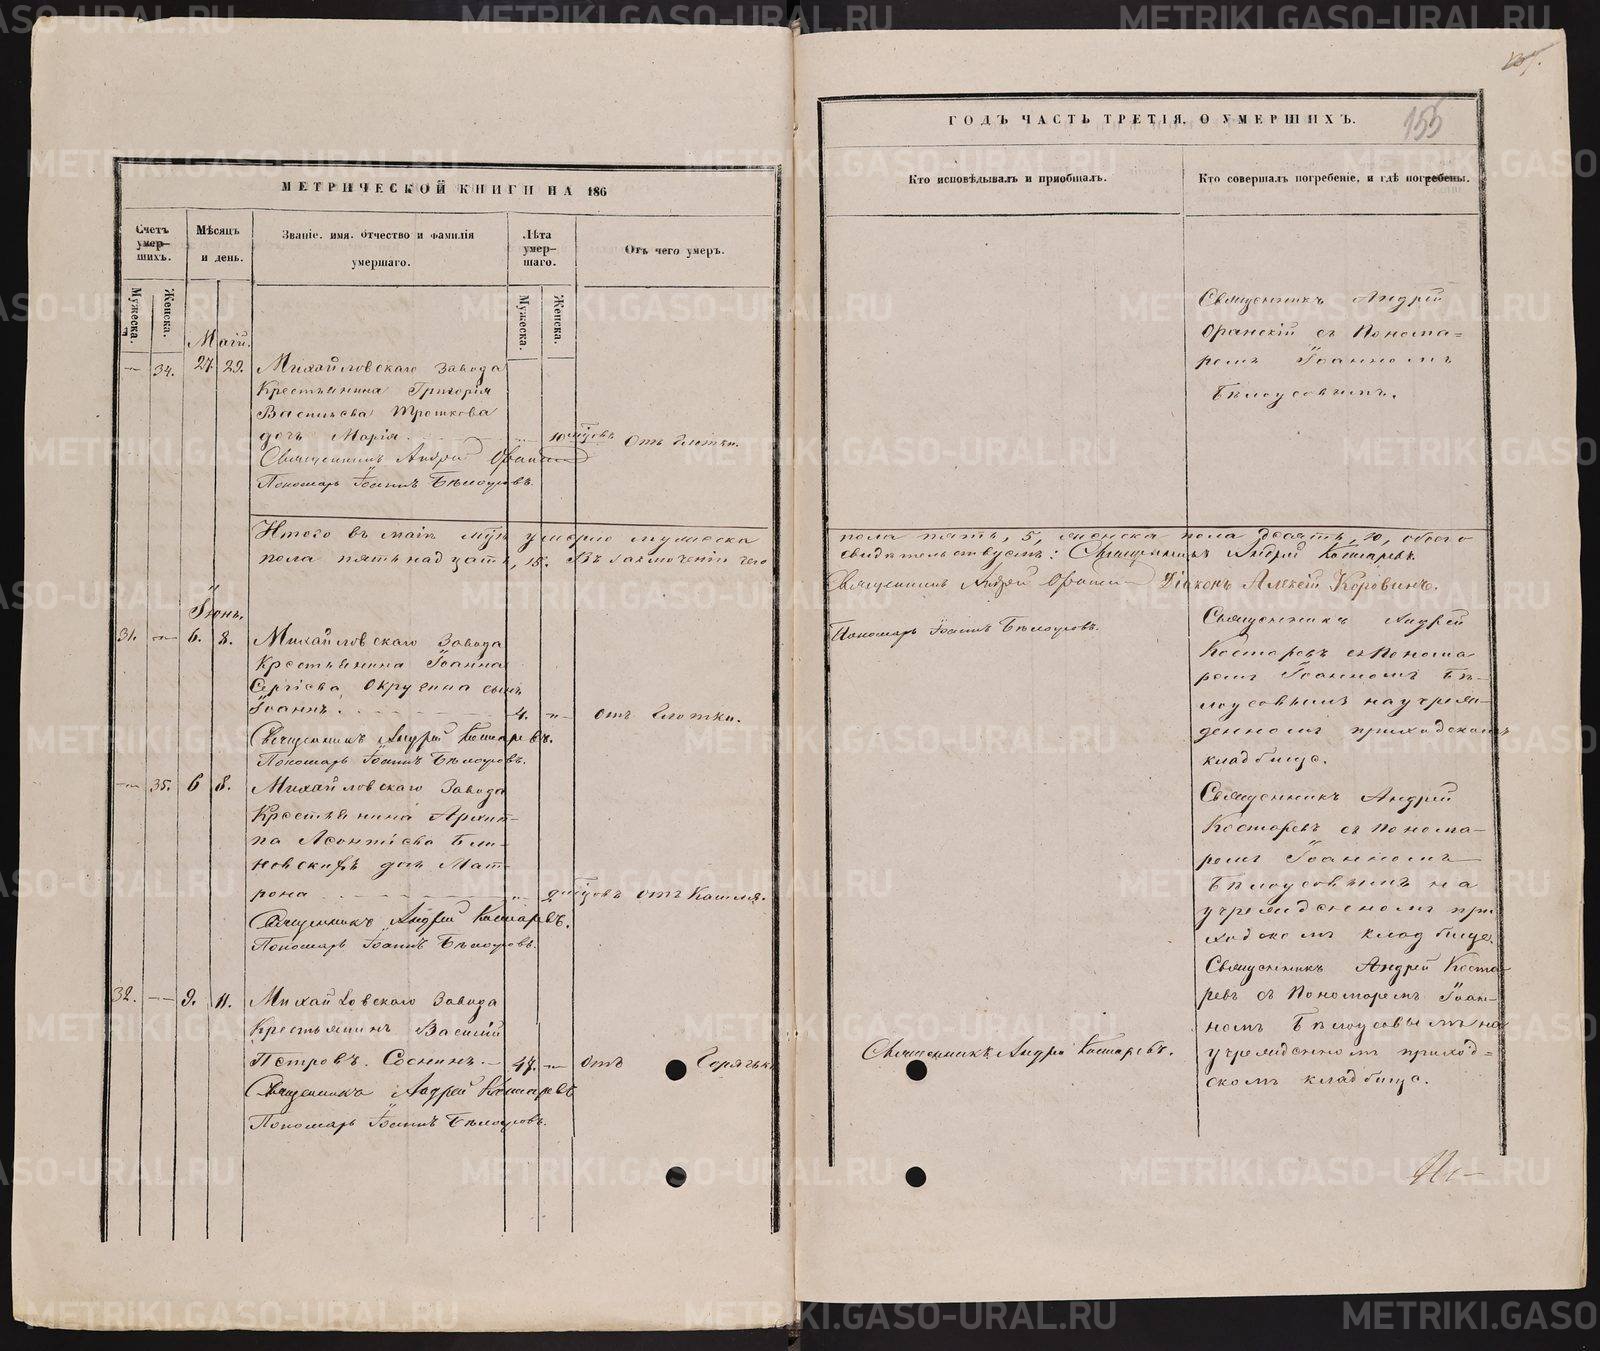 МЕТРИЧЕСКОЙ КНИГИ НА 186
Счетъ умер-шихъ.
Мѣсяцъ и день.
Званіе, имя, отчество и фамилія умершаго.
Лѣта умер-шаго.
Отъ чего умеръ.
Мужеска.
Женска.
Мужеска.
Женска.
Маій.
— 34. 27. 29. Михайловскаго Завода
Крестьянина Григорія
Васильева Трошкова
дочь Марія. 10 мѣсяцовъ Отъ Глотки.
Священникъ Андрей Оранскій
Пономарь Іоаннъ Бѣлоусовъ.
Итого въ маіѣ м҃цѣ умерло мужеска
пола пятнадцать, 15. Въ заключеніи чего
Іюнь.
31. — 6. 8. Михайловскаго Завода
Крестьянина Іоанна
Сергіева сынъ
Іоаннъ. 4. — отъ Глотки.
Священникъ Андрей Костаревъ.
Пономарь Іоаннъ Бѣлоусовъ.
— 35. 6 8. Михайловскаго Завода
Крестьянина Архип-
па Леонтіева Бли-
новскихъ дочь Мат-
рона отъ Кашля.
Священникъ Андрей Костаревъ.
Пономарь Іоаннъ Бѣлоусовъ.
32. — 9. 11. Михайловскаго Завода
Крестьянинъ Василій
Петровъ Соснинъ. — 47. — отъ Горячки
Священникъ Андрей Костаревъ
Пономарь Іоаннъ Бѣлоусовъ.
155
ГОДЪ ЧАСТЬ ТРЕТІЯ, О УМЕРШИХЪ.
Кто исповѣдывалъ и пріобщалъ.
Кто совершалъ погребеніе, и гдѣ погребены.
Священникъ Андрей
Оранскій съ Понома=
ремъ Іоанномъ
Бѣлоусовымъ.
пола пять, 5, женска пола десять, 10, обоего
свидѣтельствуемъ: Священникъ Андрей Костаревъ.
Священникъ Андрей Оранскій Діаконъ Алексій Коровинъ.
Пономарь Іоаннъ Бѣлоусовъ.
Священникъ Андрей
Костаревъ съ Понома
ремъ Іоанномъ Бѣ-
лоусовымъ на учреж-
денномъ приходскомъ
кладбищѣ.
Священникъ Андрей
Костаревъ съ Понома-
ремъ Іоанномъ
Бѣлоусовымъ на
учрежденномъ при
ходскомъ кладбищѣ.
Священникъ Андрей Коста-
ревъ съ Пономаремъ Іоан-
номъ Бѣлоусовымъ на
Священникъ Андрей Костаревъ. учрежденномъ приход=
скомъ кладбищѣ.
METRIKI.GASO-URAL.RU